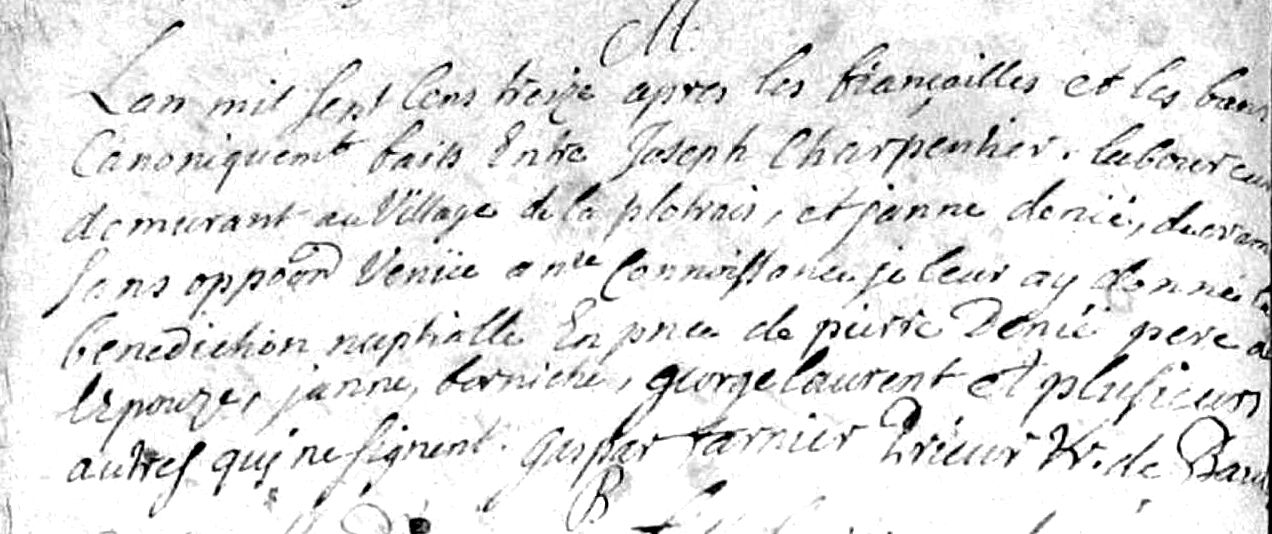 M.
Lan mil sept Cens treize apres les fiançailles et les bans
Canoniquemt faits Entre Joseph Charpentier, laboureur
demeurant au Village de la plotrais, et janne denié,
sans oppoon Veniie a nre Connoissance je leur ay donné la
benediction nuptialle En pnce de pierre Denié pere de
lepouze, janne, george laurent et plusieurs
autres quj ne signent. gaspar Prieur Vr. de
B